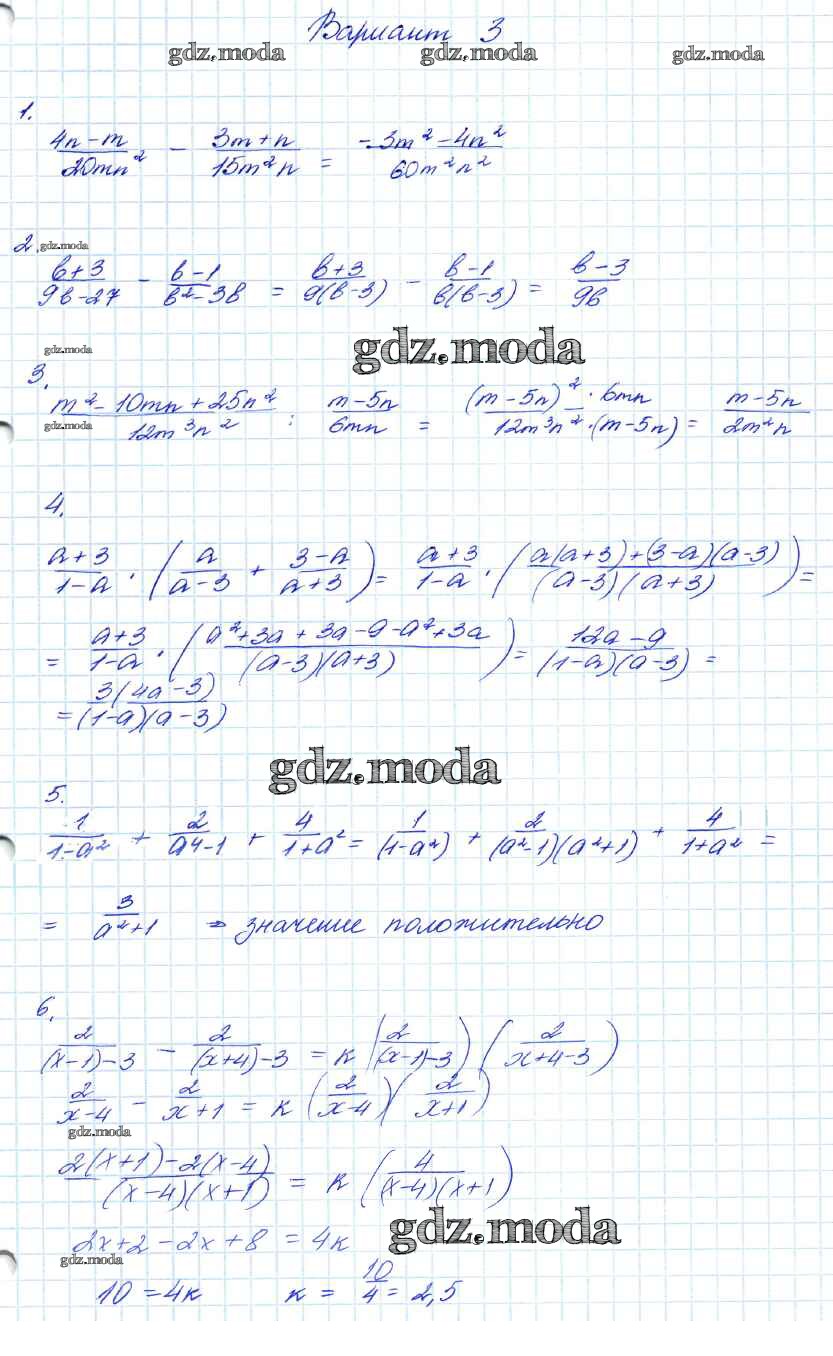 Вариант 3
gdz.moda gdz.moda gdz.moda
1.
(4n-m)/(20mn²) - (3m+n)/(15m²n) = (-3m²-4n²)/(60m²n²)
2. gdz.moda
(b+3)/(9b-27) - (b-1)/(b²-3b) = (b+3)/(9(b-3)) - (b-1)/(b(b-3)) = (b-3)/(9b)
gdz.moda gdz.moda
3.
(m²-10mn+25n²)/(12m³n²) : (m-5n)/(6mn) = ((m-5n)²·6mn)/(12m³n²·(m-5n)) = (m-5n)/(2m²n)
gdz.moda
4.
(a+3)/(1-a) · (a/(a-3) + (3-a)/(a+3)) = (a+3)/(1-a) · ((a(a+3)+(3-a)(a-3))/((a-3)(a+3))) =
= (a+3)/(1-a) · ((a²+3a+3a-9-a²+3a)/((a-3)(a+3))) = (12a-9)/((1-a)(a-3)) =
= (3(4a-3))/((1-a)(a-3))
gdz.moda
5.
1/(1-a²) + 2/(a⁴-1) + 4/(1+a²) = 1/(1-a²) + 2/((a²-1)(a²+1)) + 4/(1+a²) =
= 3/(a²+1) ⇒ значение положительно
6.
2/((x-1)-3) - 2/((x+4)-3) = к (2/((x-1)-3)) (2/(x+4-3))
2/(x-4) - 2/(x+1) = к (2/(x-4))(2/(x+1))
gdz.moda
(2(x+1)-2(x-4))/((x-4)(x+1)) = к (4/((x-4)(x+1)))
gdz.moda
2x+2-2x+8 = 4к
gdz.moda
10 = 4к к = 10/4 = 2,5